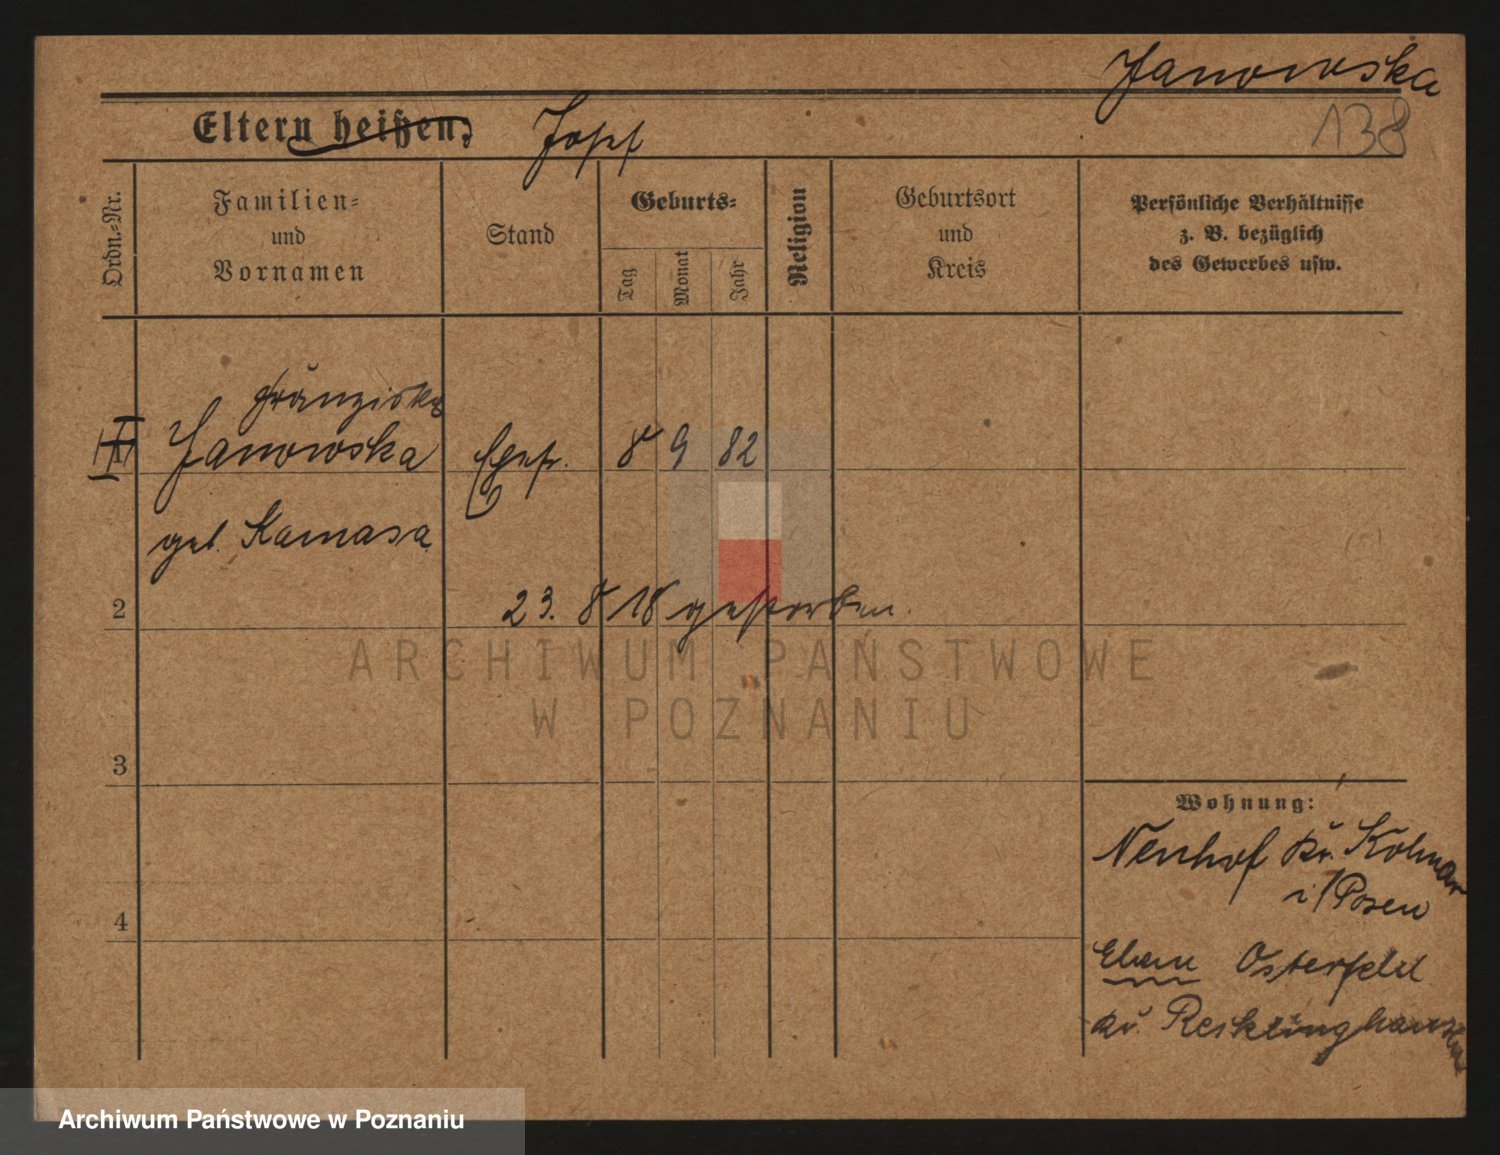 Janowska
138
Eltern heißen: Josef
Ordn.-Nr.
Familien=
und
Vornamen
Stand
Geburts=
Tag
Monat
Jahr
Religion
Geburtsort
und
Kreis
Persönliche Verhältnisse
z. B. bezüglich
des Gewerbes usw.
Franziska
Janowska Ehefr. 8 9 82
geb. Kamasa
2
23. 8 18 gestorben.
3
4
Wohnung:
Neuhof Kr. Kolmar
i/Posen
Osterfeld
Kr. Recklinghausen
ARCHIWUM PAŃSTWOWE
W POZNANIU
Archiwum Państwowe w Poznaniu